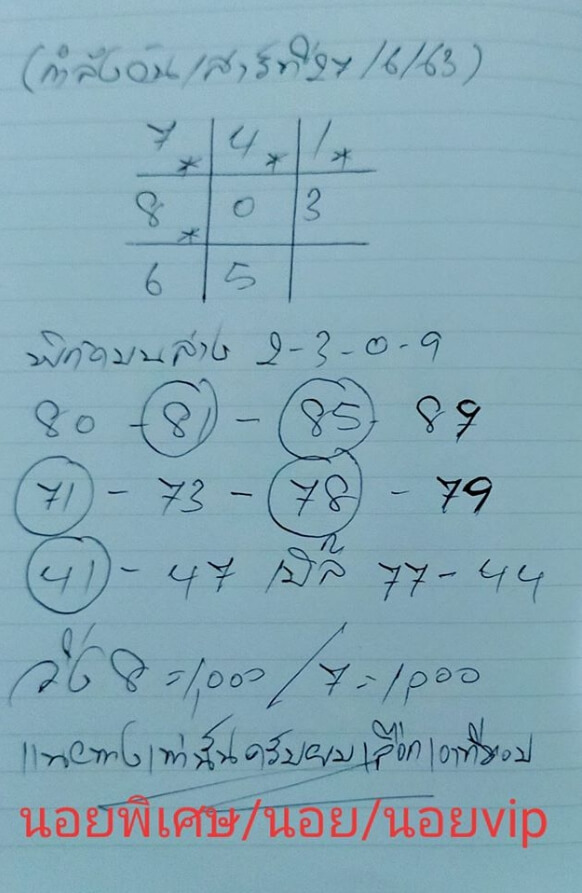 (กำลังวัน/เสาร์ที่27/6/63)
7* 4* 1*
8* 0 3
6 5
พิกัดบนล่าง 2-3-0-9
80 - 81 - 85 - 89
71 - 73 - 78 - 79
41 - 47 เบิ้ล 77-44
วิ่ง 8 =1,000 / 7=1,000
แนวทางเท่านั้นครับผม เลือกเอาที่ชอบ
นอยพิเศษ/นอย/นอยvip